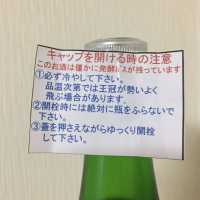 キャップを開ける時の注意
このお酒は僅かに発酵ガスが残っています
①必ず冷やして下さい。
品温次第では王冠が勢いよく
飛ぶ場合があります。
②開栓時には絶対に瓶をふらないで
下さい。
③蓋を押さえながらゆっくり開栓
して下さい。